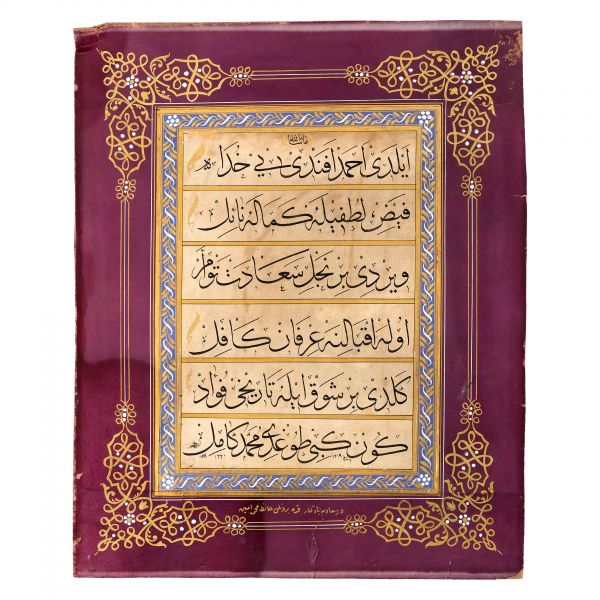 ايلدى احمد افندى يى خداه
فيض لطفيله كماله نائل
ويردى بر نجل سعادت توأم
اوله اقبالنه عرفان كافل
كلدى بر شوق ايله تاريخى فؤاد
كون كبى طوغدى محمد كامل